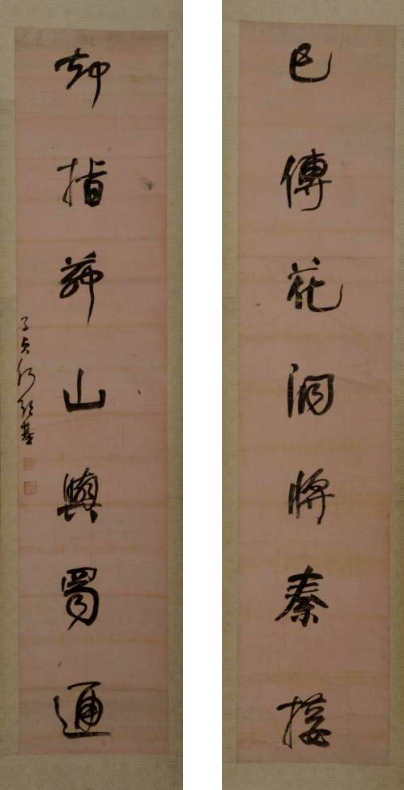 已傳花洞將秦接
却指茅山與蜀通
子貞何紹基